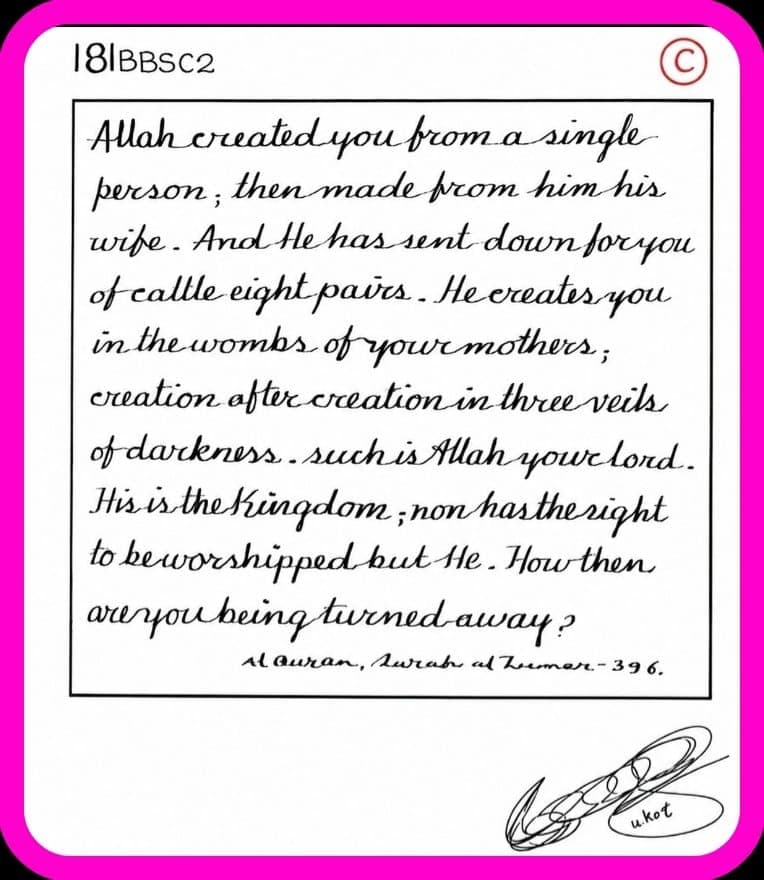 181BBSC2
©
Allah created you from a single
person; then made from him his
wife. And He has sent down for you
of cattle eight pairs. He creates you
in the wombs of your mothers;
creation after creation in three veils
of darkness. such is Allah your lord.
His is the Kingdom; non has the right
to be worshipped but He. How then
are you being turned away?
Al Quran, Surah al Zumar-396.
u.kot